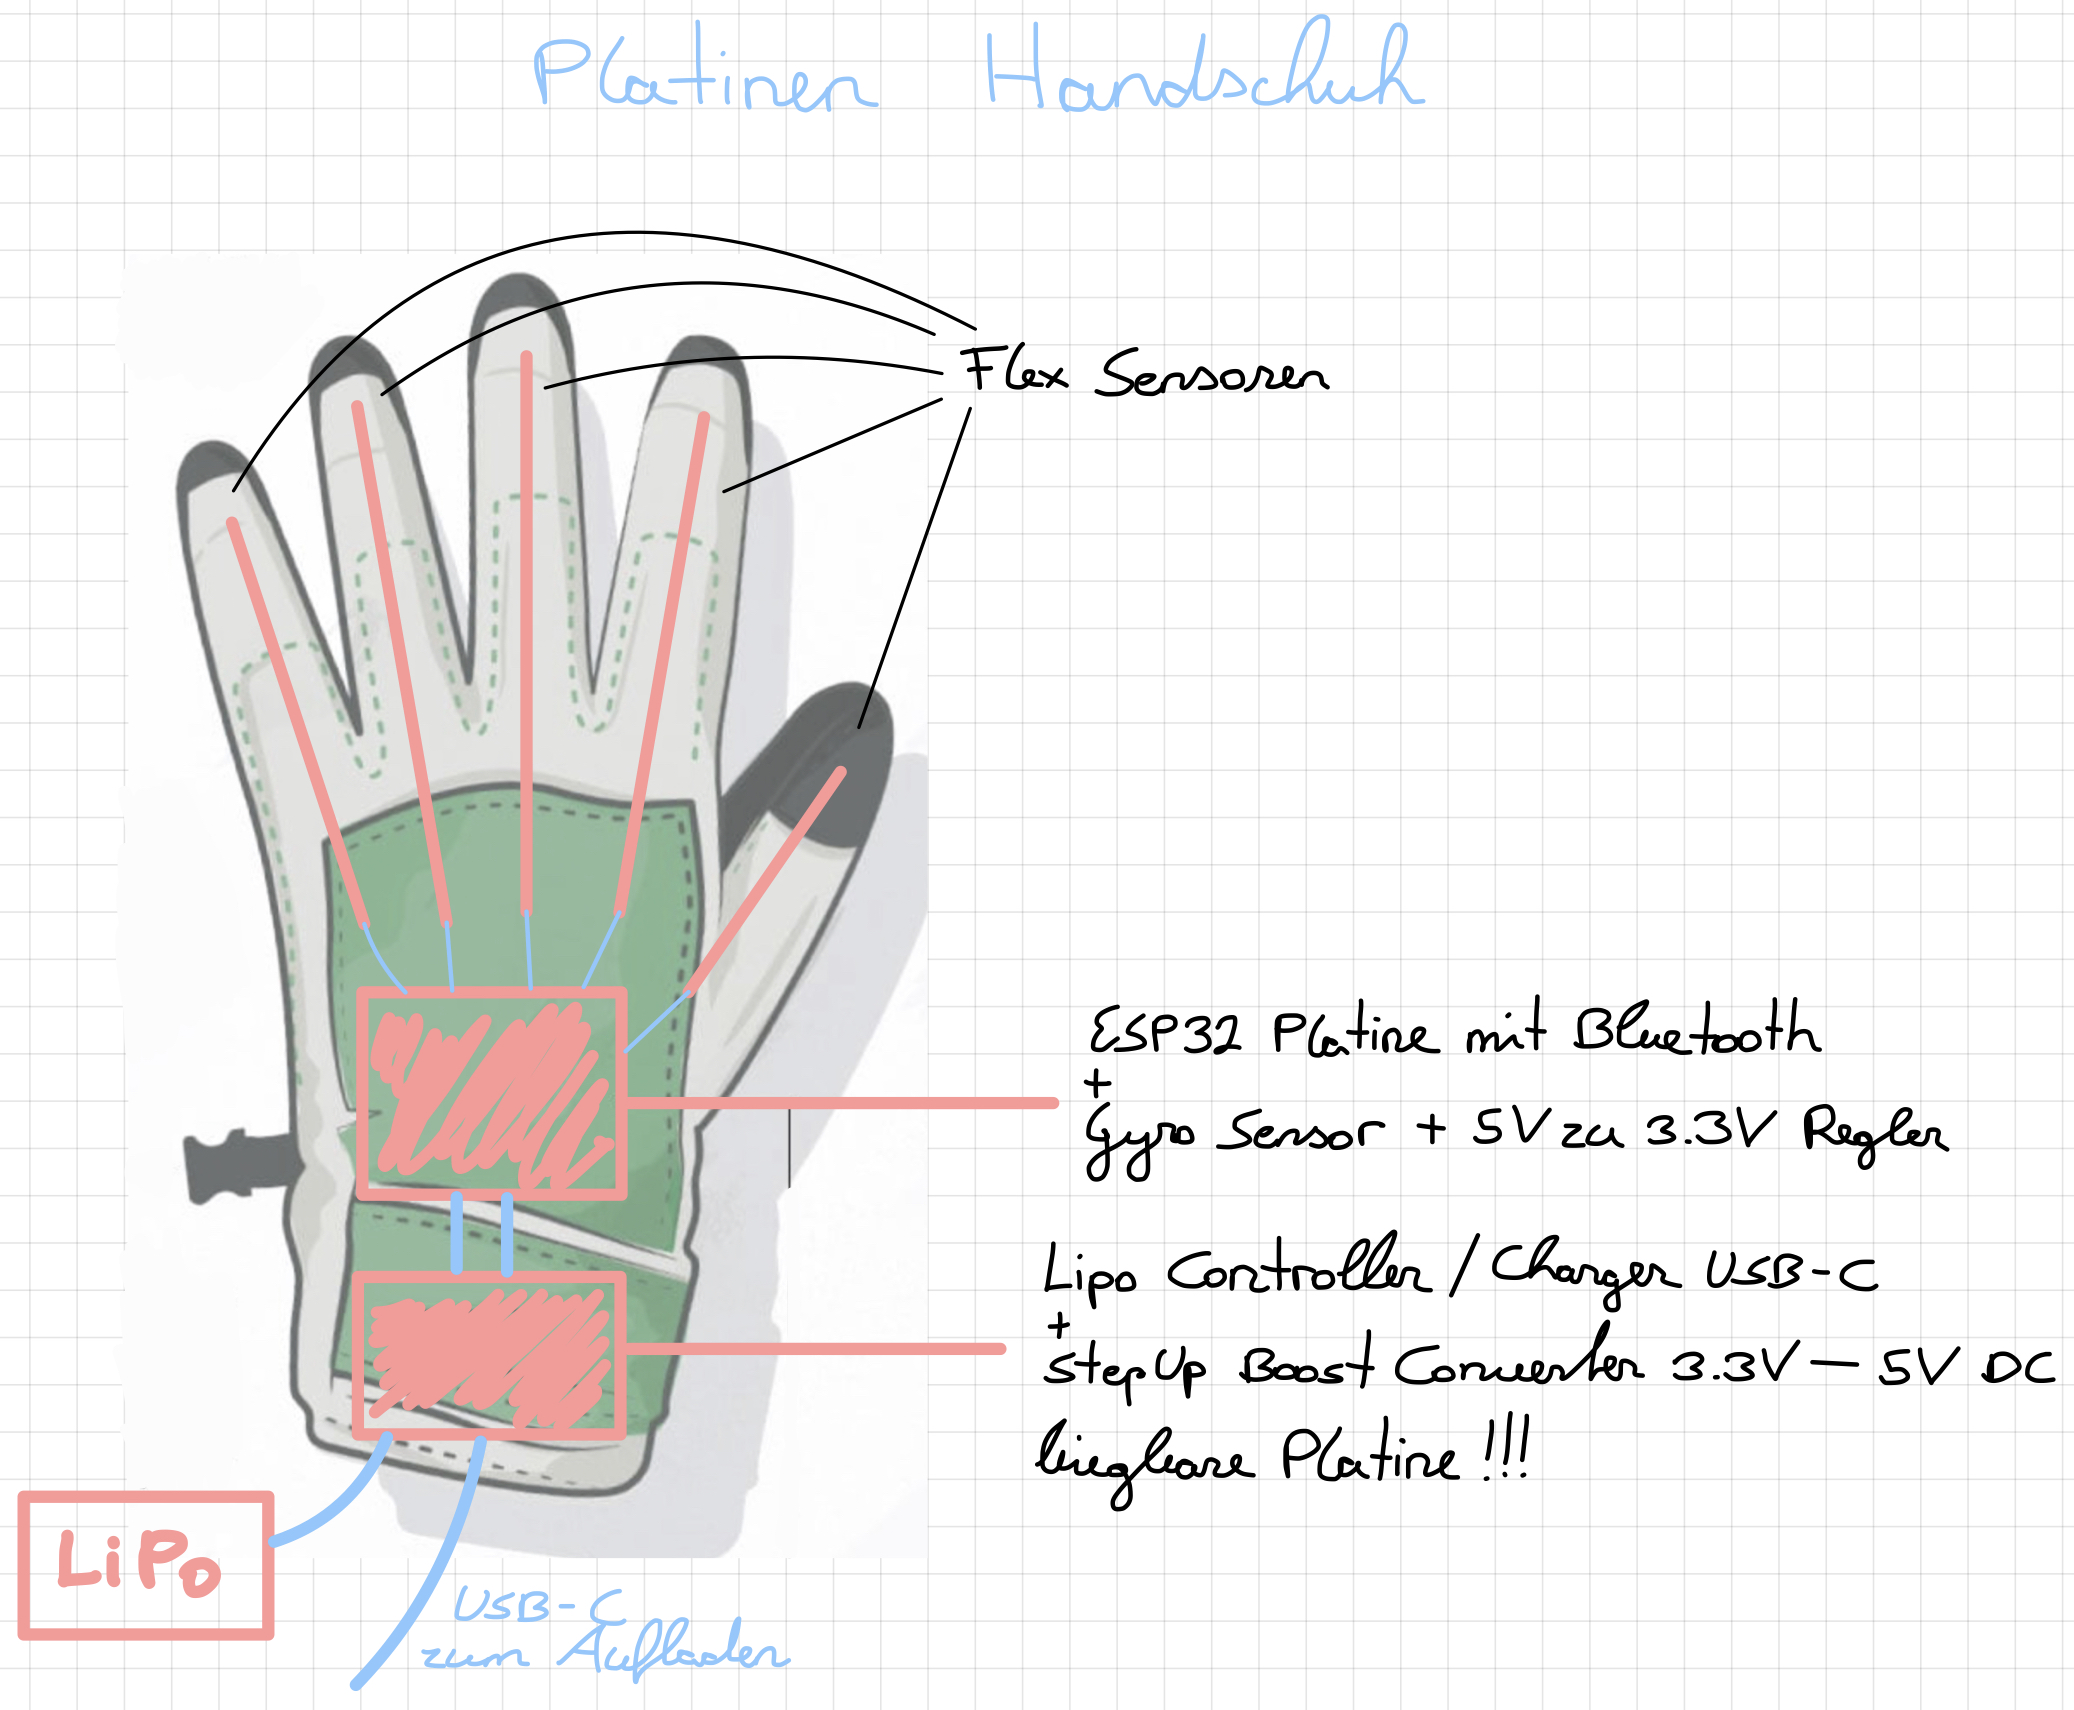 Platinen Handschuh
Flex Sensoren
ESP32 Platine mit Bluetooth
+
Gyro Sensor + 5V zu 3.3V Regler
Lipo Controller / Charger USB-C
+
StepUp Boost Converter 3.3V — 5V DC
biegbare Platine !!!
LiPo
USB-C
zum Aufladen